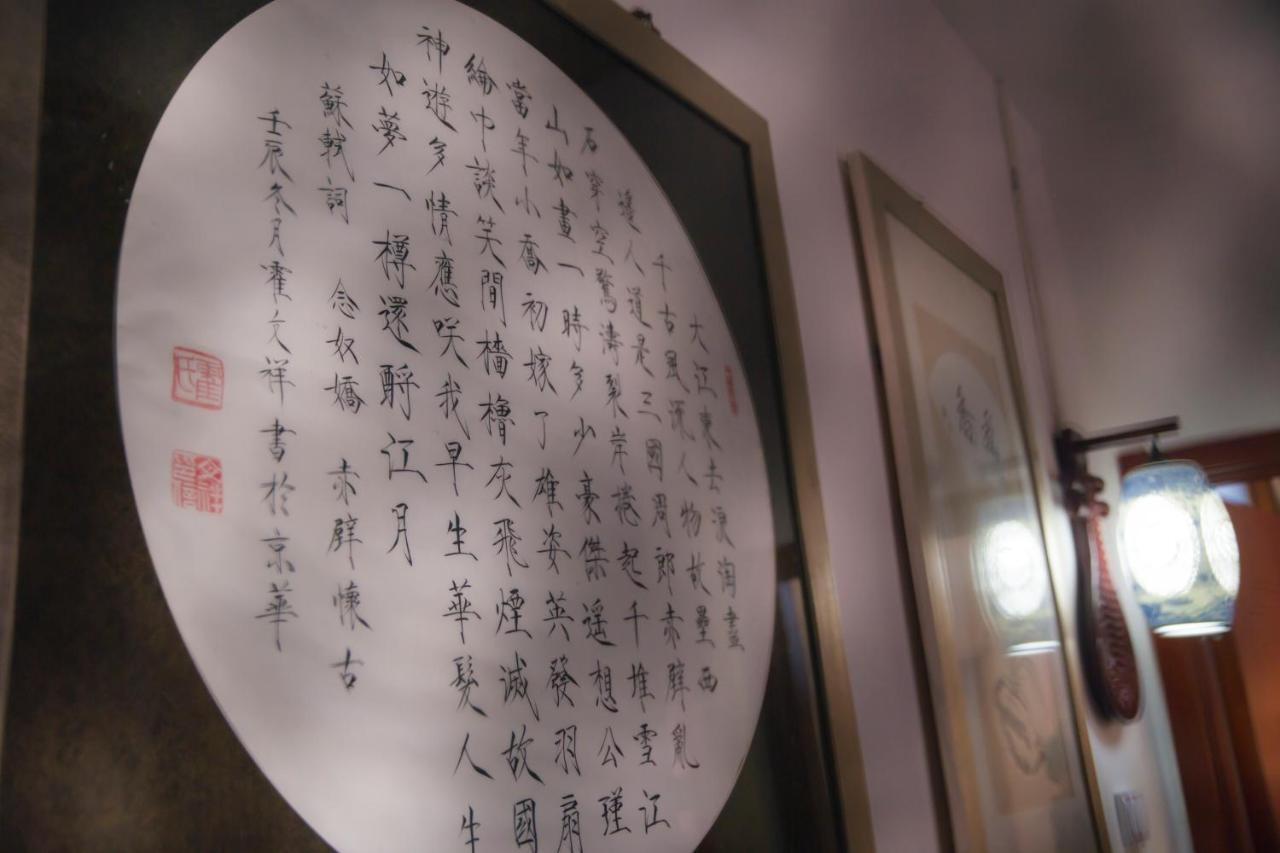 大江東去浪淘盡
千古風流人物故壘西
邊人道是三國周郎赤壁亂
石穿空驚濤裂岸捲起千堆雪江
山如畫一時多少豪傑遙想公瑾
當年小喬初嫁了雄姿英發羽扇
綸巾談笑間檣櫓灰飛煙滅故國
神遊多情應咲我早生華髮人生
如夢一樽還酹江月
蘇軾詞 念奴嬌 赤壁懷古
壬辰冬月霍文祥書於京華
霍氏